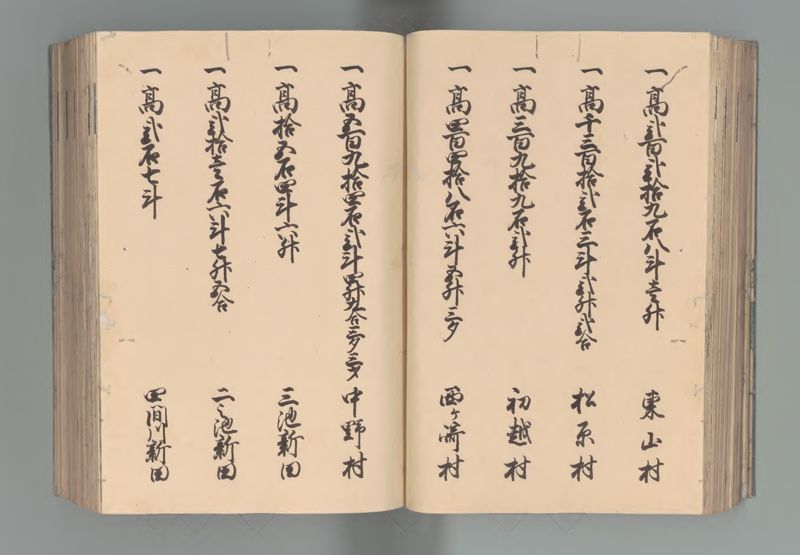 一高弐百弐拾九石八斗壱升 東山村
一高千三百拾弐石三斗弐升弐合 松原村
一高三百九拾九石弐升 初越村
一高四百四拾八石六斗五升三夕 西ヶ崎村
一高五百九拾四石弐斗四升九合三夕三才 中野村
一高拾五石四斗六升 三池新田
一高弐拾壱石六斗七升五合 二之池新田
一高弐石七斗 新田